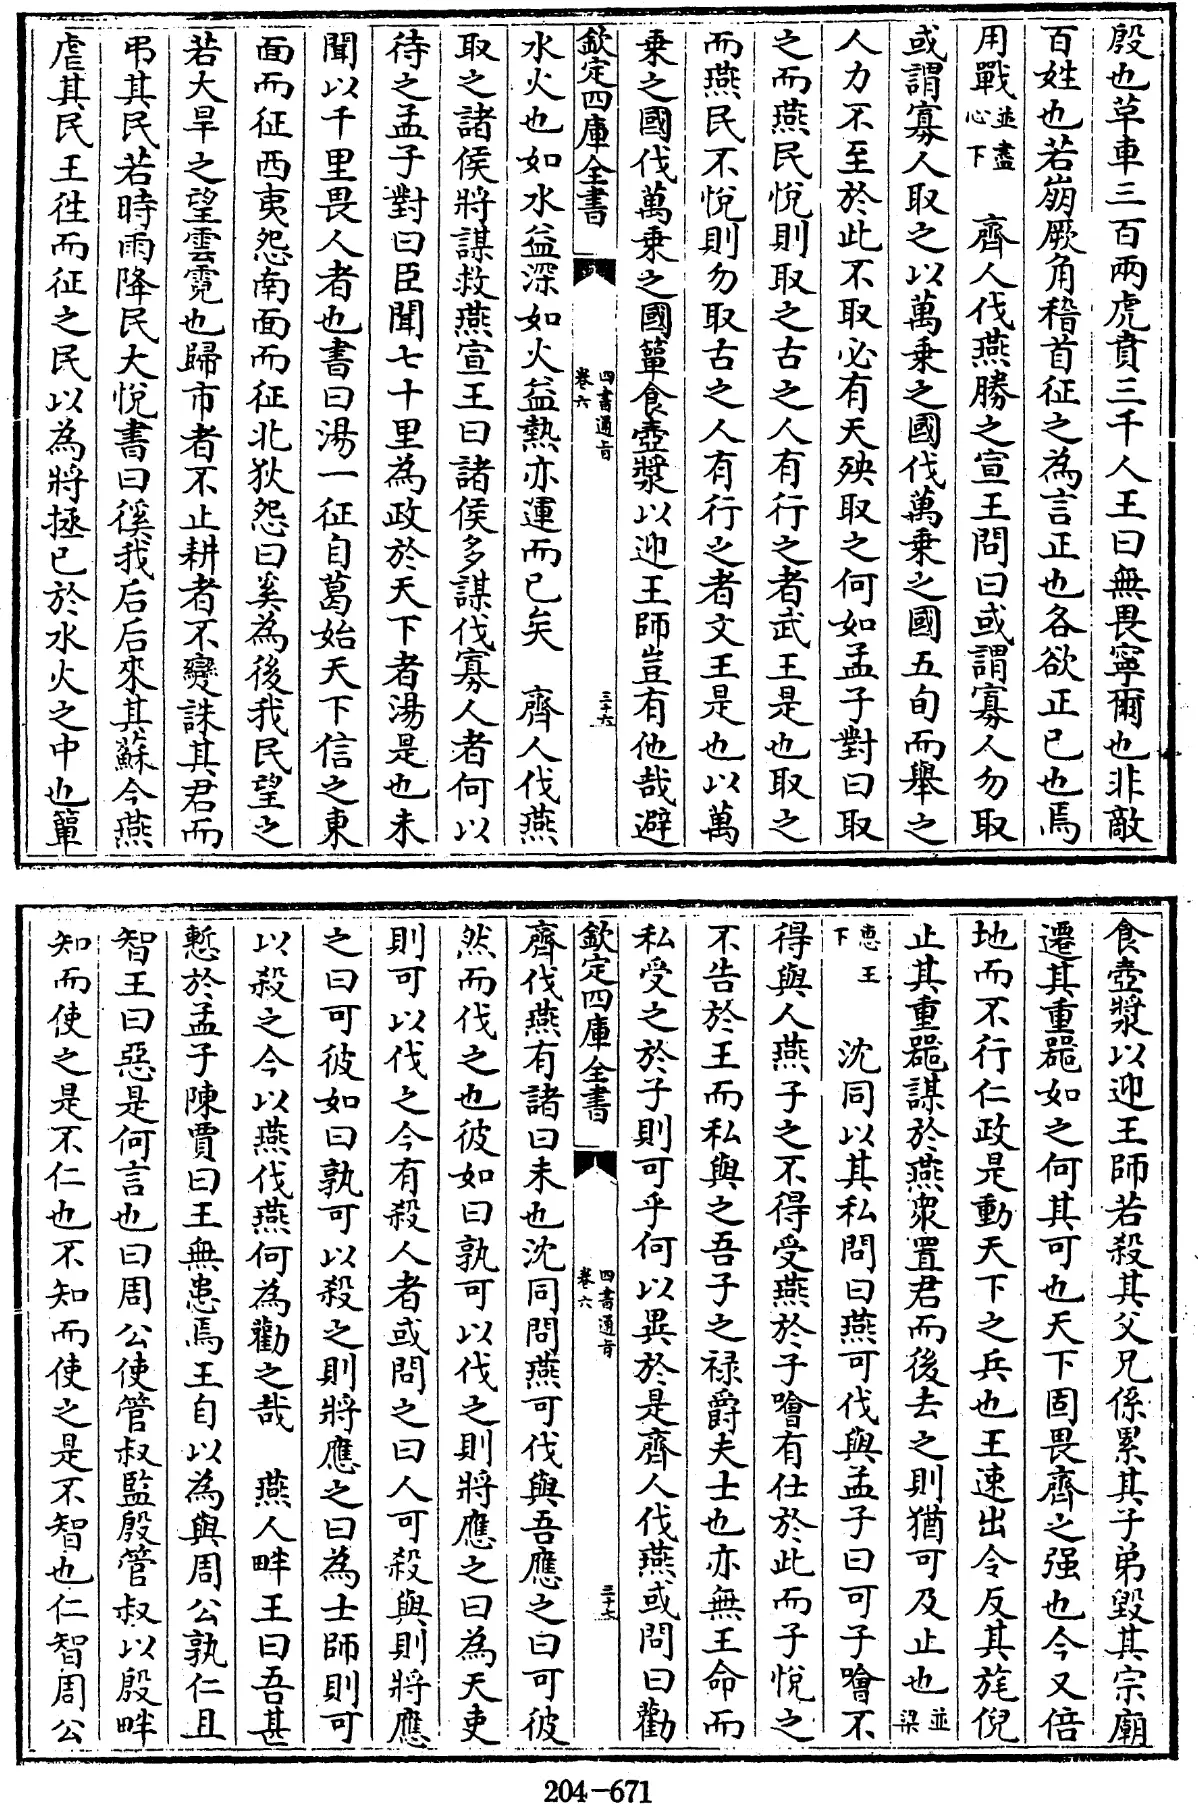 殷也革車三百兩虎賁三千人王曰無畏寧爾也非敵
百姓也若崩厥角稽首征之為言正也各欲正已也焉
用戰並盡心下　齊人伐燕勝之宣王問曰或謂寡人勿取
或謂寡人取之以萬乗之國伐萬乗之國五旬而舉之
人力不至於此不取必有天殃取之何如孟子對曰取
之而燕民悅則取之古之人有行之者武王是也取之
而燕民不悅則勿取古之人有行之者文王是也以萬
乗之國伐萬乗之國簞食壺漿以迎王師豈有他哉避
欽定四庫全書　四書通旨卷六　三十六
水火也如水益深如火益熱亦運而已矣　齊人伐燕
取之諸侯將謀救燕宣王曰諸侯多謀伐寡人者何以
待之孟子對曰臣聞七十里為政於天下者湯是也未
聞以千里畏人者也書曰湯一征自葛始天下信之東
面而征西夷怨南面而征北狄怨曰奚為後我民望之
若大旱之望雲霓也歸市者不止耕者不變誅其君而
弔其民若時雨降民大悅書曰徯我后后來其蘇今燕
虐其民王徃而征之民以為將拯已於水火之中也簞
食壺漿以迎王師若殺其父兄係累其子弟毀其宗廟
遷其重器如之何其可也天下固畏齊之强也今又倍
地而不行仁政是動天下之兵也王速出令反其旄倪
止其重器謀於燕衆置君而後去之則猶可及止也並梁
惠王下　沈同以其私問曰燕可伐與孟子曰可子噲不
得與人燕子之不得受燕於子噲有仕於此而子悅之
不告於王而私與之吾子之祿爵夫士也亦無王命而
私受之於子則可乎何以異於是齊人伐燕或問曰勸
欽定四庫全書　四書通旨卷六　三十六
齊伐燕有諸曰未也沈同問燕可伐與吾應之曰可彼
然而伐之也彼如曰孰可以伐之則將應之曰為天吏
則可以伐之今有殺人者或問之曰人可殺與則將應
之曰可彼如曰孰可以殺之則將應之曰為士師則可
以殺之今以燕伐燕何為勸之哉　燕人畔王曰吾甚
慙於孟子陳賈曰王無患焉王自以為與周公孰仁且
智王曰惡是何言也曰周公使管叔監殷管叔以殷畔
知而使之是不仁也不知而使之是不智也仁智周公
204-671